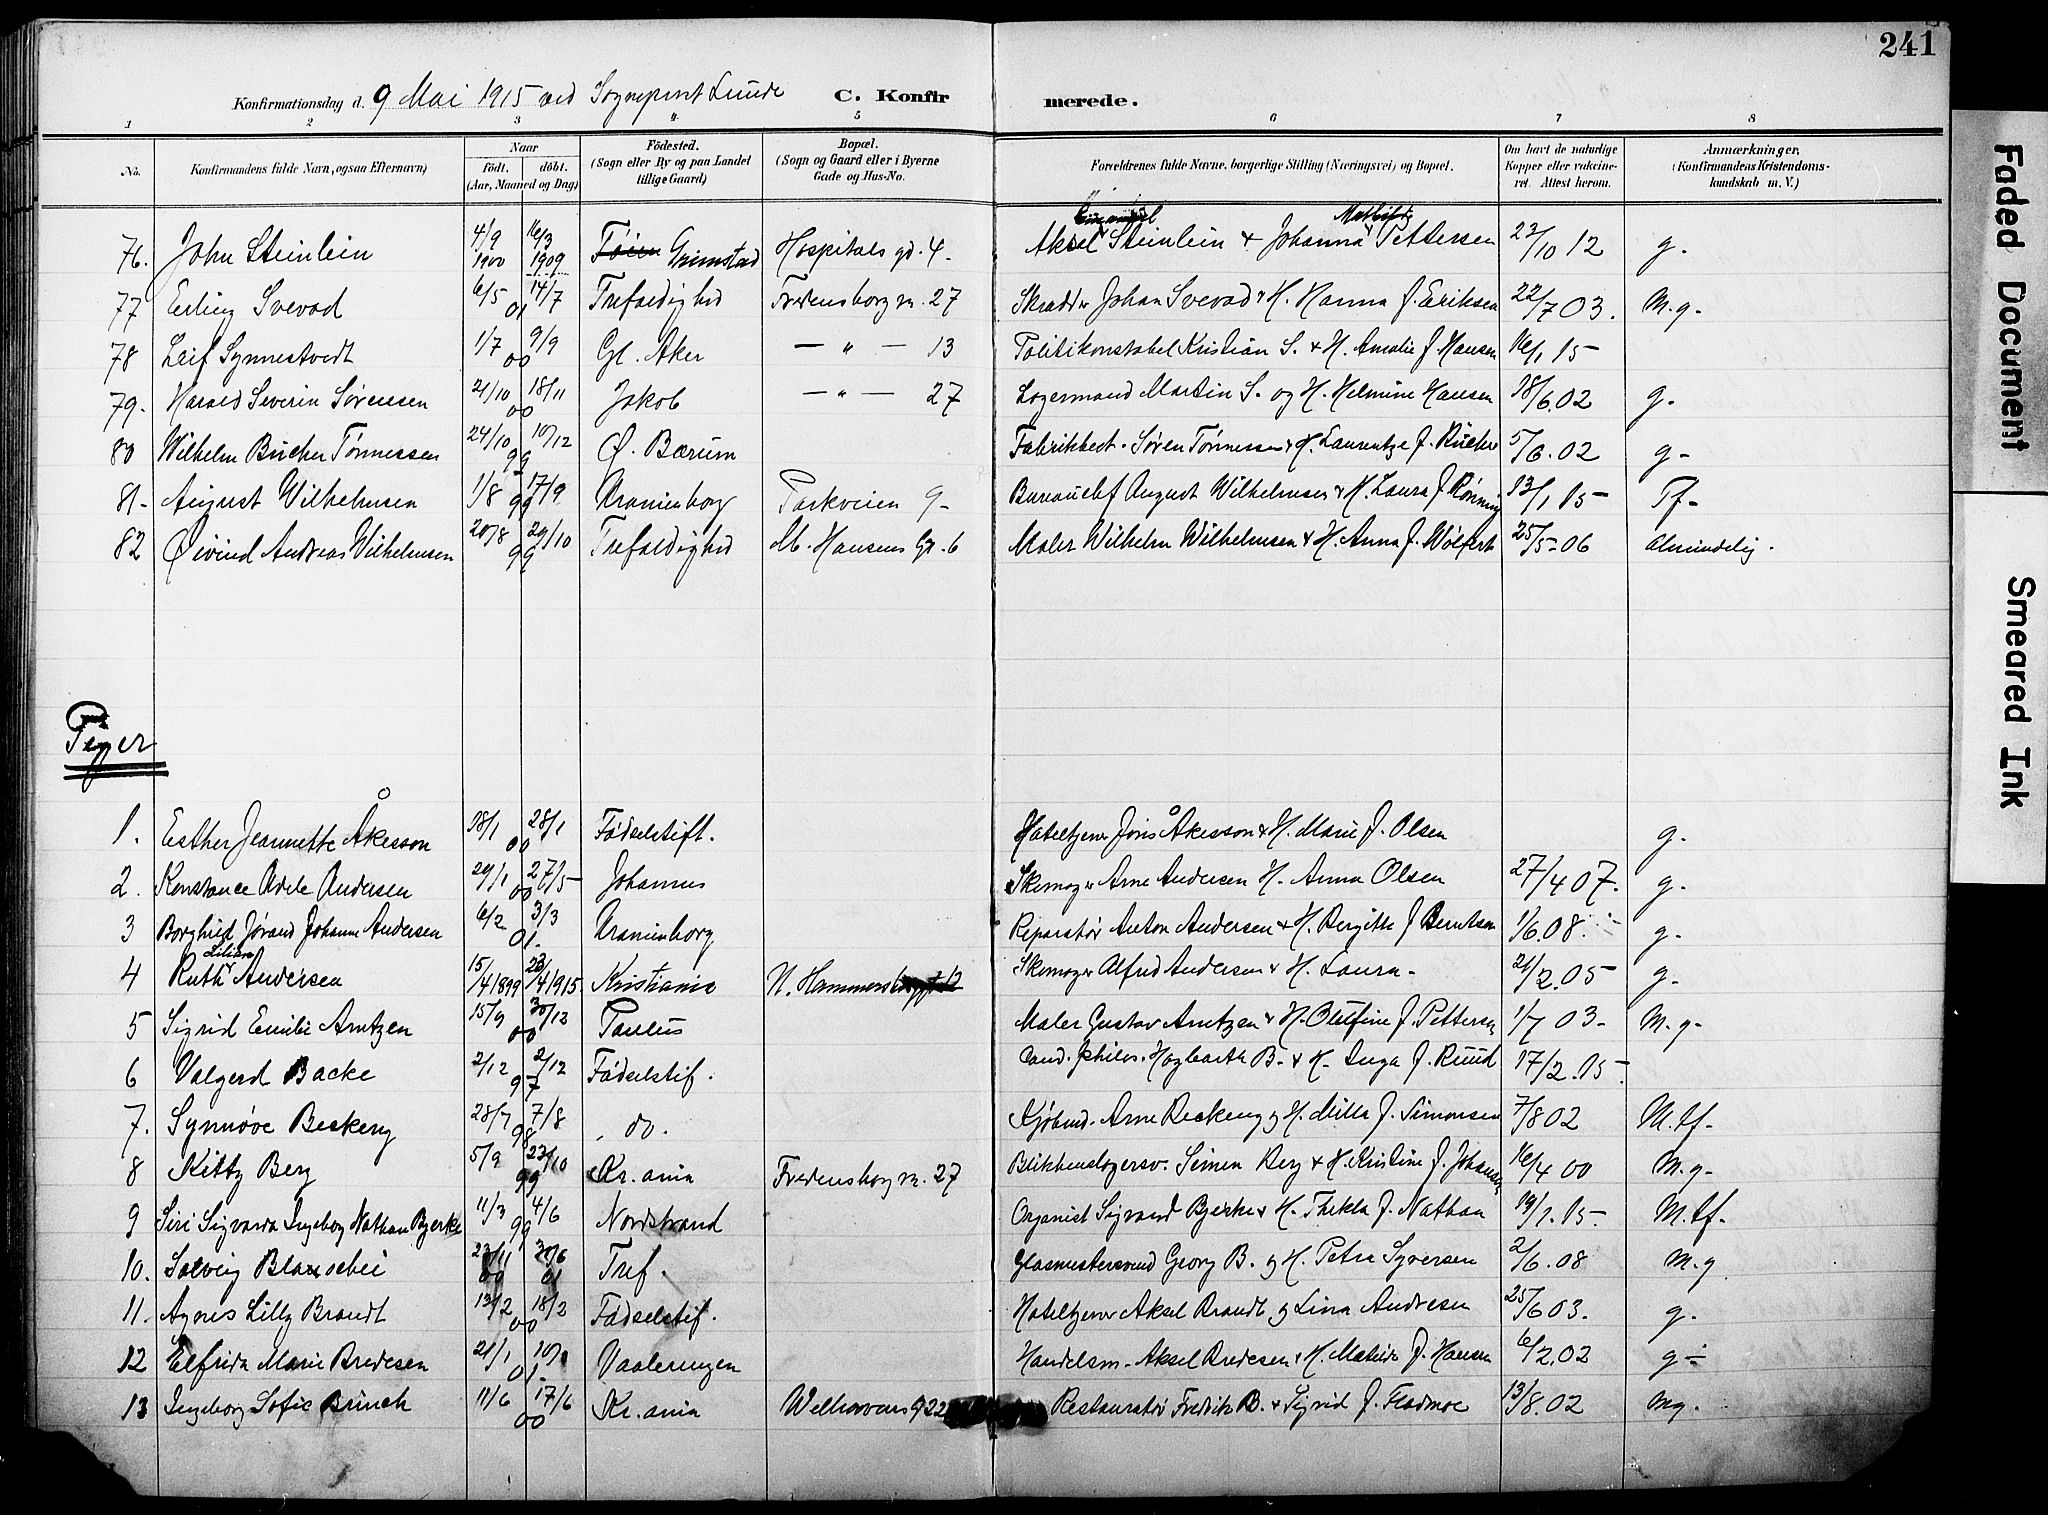 241
Konfirmationsdag d. 9 Mai 1915 ved Sogneprest Lunde C. Konfirmerede.
1 2 3 4 5 6 7 8
No. Konfirmandens fulde Navn, ogsaa Efternavn) Naar født. døbt. (Aar, Maaned og Dag) Fødested. (Sogn eller By og paa Landet tillige Gaard) Bopæl. (Sogn og Gaard eller i Byerne Gade og Hus-No. Forældrenes fulde Navne, borgerlige Stilling (Næringsvei) og Bopæl. Om havt de naturlige Kopper eller vakcineret. Attest herom. Anmærkninger, (Konfirmandens Kristendomskundskab m. V.)
76. John Steinlein 4/9 1900 16/3 1909 Tøien Grimstad Hospitals gd. 4. Aksel Steinlein & Johanna Mathilde Pettersen 23/10 12 g.
77 Erling Svevad 6/5 14/7 01 Trefoldighed Fredensborg v. 27 Skrædder Johan Svevad & H. Hanna f. Eriksen 22/7 03. M.g.
78 Leif Synnestvedt 1/7 9/9 00 Gl. Aker — " — 13 Politikonstabel Kristian S. & H. Amalie f. Hansen 16/1 15
79. Harald Severin Sørensen 21/10 18/11 00 Jakob — " — 27 Lagermand Martin S. og H. Helmine Hansen 18/6.02 g.
80 Wilhelm Bücher Tønnessen 24/10 10/12 99 Ø. Bærum Fabrikbest. Søren Tønnessen & H. Laurentze f. Bücher 5/6.02 g-
81- August Wilhelmsen 1/8 17/9 99 Uranienborg Parkveien 9- Bureauchef August Wilhelmsen & H. Laura f. Rønning 13/1 15 Tf-
82 Øivind Andreas Wilhelmsen 20/8 29/10 99 Trefoldighed M. Hansens Gt. 6 Maler Wilhelm Wilhelmsen & H. Anna f. Wölfert 25/5-06 almindelig.
Piger
1. Esther Jeannette Åkesson 18/1 28/1 00 Fødselstift. Hoteltjener Jöns Åkesson & H. Marie f. Olsen g.
2. Konstance Adele Andersen 29/1 27/5 00 Johannes Skomager Arne Andersen H. Anna Olsen 27/4 07. g.
3 Borghild Jørand Johanne Andersen 6/2 3/3 01. Uranienborg Reparatør Anton Andersen & H. Bergitte f Berntsen 1/6.08. g.
4 Ruth Lilian Andersen 15/4 1899 23/4 1915. Kristiania N. Hammersborggt 12 Skomager Alfred Andersen & H. Laura- 21/2.05 g.
5 Sigrid Emilie Arntzen 15/9 30/12 00 Paulus Maler Gustav Arntzen & H. Olufine f. Pettersen 1/7 03- M.g-
6 Valgerd Backe 2/12 2/12 97 Fødselstif. Cand. philos. Hagbarth B. & H. Inga f. Ruud 17/2.15.
7. Synnøve Beckeng 28/7 7/8 98 do. Kjøbmd. Arne Beckeng og H. Milla f. Simonsen 7/8 02 M.tf-
8 Kitty Berg 5/9 23/10 99 Kr.ania Fredensborg v. 27 Blikkenslagersv. Simen Berg & H. Kristine f. Johansen 16/4 00 M.g-
9 Siri Sigvarda Ingeborg Nathan Bjerke 11/3 4/6 99 Nordstrand Organist Sigvard Bjerke & H. Thekla f. Nathan 19/1.15. M.tf.
10. Solveig 23/11 00 30/6 01 Tref. Glasmestersvend Georg B. og H. Petra Syversen 2/6.08 M.g
11. Agnes Lilly Brandt 13/2 18/3 00 Fødselstif. Hoteltjener Aksel Brandt og Lina Andresen 25/6 03. g.
12 Elfrida Marie Bredesen 21/1 01. Vaalerengen Handelsm. Aksel Bredesen & H. Mathilde f. Hansen 6/2.02 g-
13 Ingeborg Sofie Brinch 11/6 17/6 00 Kr.ania Welhavens g 22 Restauratør Fredrik B. & Sigrid f. Fladmoe 13/8.02 mg.
Faded Document
Smeared Ink